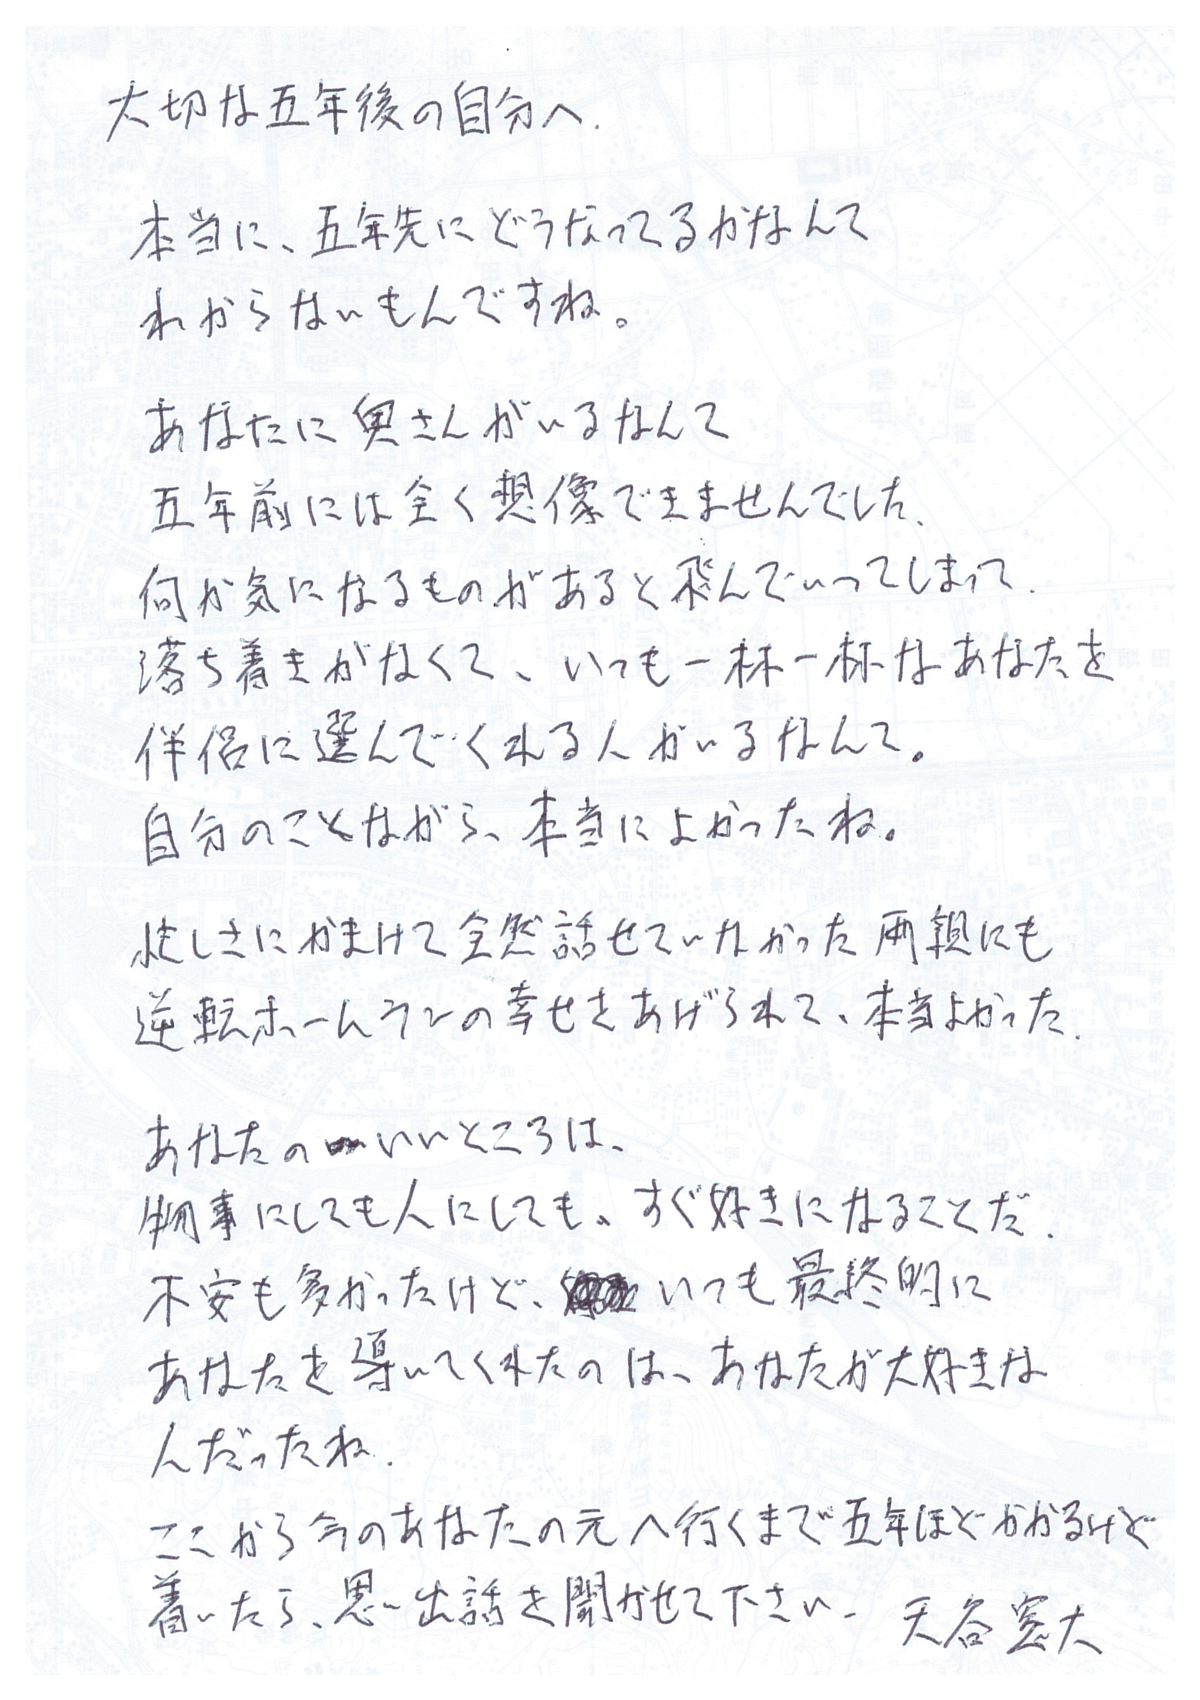 大切な五年後の自分へ.
本当に、五年先にどうなってるかなんて
わからないもんですね。
あなたに奥さんがいるなんて
五年前には全く想像できませんでした.
何か気になるものがあると飛んでいってしまって.
落ち着きがなくて、いつも一杯一杯なあなたを
伴侶に選んでくれる人がいるなんて。
自分のことながら、本当によかったね。
忙しさにかまけて全然話せていなかった両親にも
逆転ホームランの幸せをあげられて、本当よかった.
あなたのいいところは、
物事にしても人にしても、すぐ好きになることだ.
不安も多かったけど、いつも最終的に
あなたを導いてくれたのは、あなたが大好きな
人だったね.
ここから今のあなたの元へ行くまで五年ほどかかるけど
着いたら、思い出話を聞かせて下さい.
天谷窓大